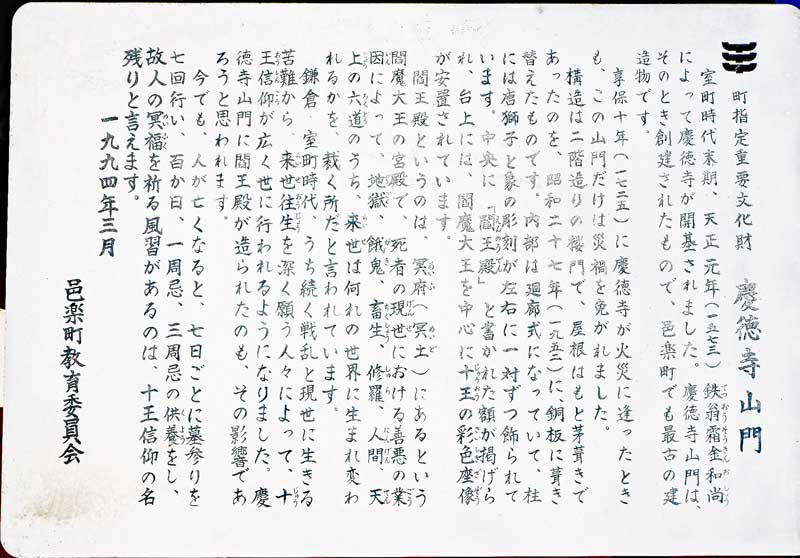 町指定重要文化財　慶徳寺山門
室町時代末期、天正元年(一五七三)鉄翁霜金和尚
によって慶徳寺が開基されました。慶徳寺山門は、
そのとき創建されたもので、邑楽町でも最古の建
造物です。
享保十年(一七二五)に慶徳寺が火災に逢ったとき
も、この山門だけは災禍を免がれました。
構造は二階造りの楼門で、屋根はもと茅葺きで
あったのを、昭和二十七年(一九五二)に、銅板に葺き
替えたものです。内部は廻廊式になっていて、柱
には唐獅子と象の彫刻が左右に一対ずつ飾られて
います。中央に「閻王殿」と書かれた額が掲げら
れ、台上には、閻魔大王を中心に十王の彩色座像
が安置されています。
閻王殿というのは、冥府(冥土)にあるという
閻魔大王の宮殿で、死者の現世における善悪の業
因によって、地獄、餓鬼、畜生、修羅、人間、天
上の六道のうち、来世は何れの世界に生まれ変わ
れるかを、裁く所だと言われています。
鎌倉、室町時代、うち続く戦乱と現世に生きる
苦難から、来世往生を深く願う人々によって、十
王信仰が広く世に行われるようになりました。慶
徳寺山門に閻王殿が造られたのも、その影響であ
ろうと思われます。
今でも、人が亡くなると、七日ごとに墓参りを
七回行い、百か日、一周忌、三周忌の供養をし、
故人の冥福を祈る風習があるのは、十王信仰の名
残りと言えます。
一九九四年三月
邑楽町教育委員会